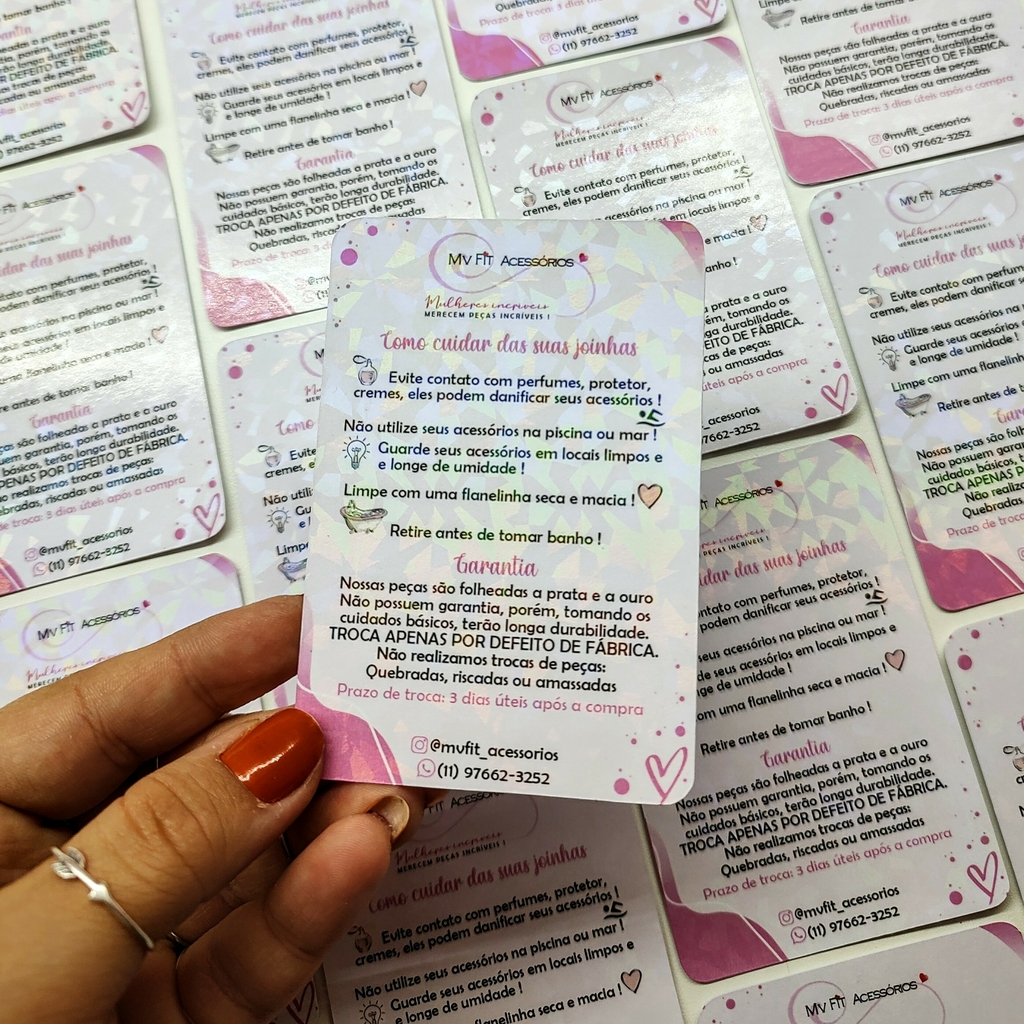 Mv Fit Acessórios
Mulheres incríveis
MERECEM PEÇAS INCRÍVEIS !
Como cuidar das suas joinhas
Evite contato com perfumes, protetor,
cremes, eles podem danificar seus acessórios !
Não utilize seus acessórios na piscina ou mar !
Guarde seus acessórios em locais limpos e
e longe de umidade !
Limpe com uma flanelinha seca e macia !
Retire antes de tomar banho !
Garantia
Nossas peças são folheadas a prata e a ouro
Não possuem garantia, porém, tomando os
cuidados básicos, terão longa durabilidade.
TROCA APENAS POR DEFEITO DE FÁBRICA.
Não realizamos trocas de peças:
Quebradas, riscadas ou amassadas
Prazo de troca: 3 dias úteis após a compra
@mvfit_acessorios
(11) 97662-3252